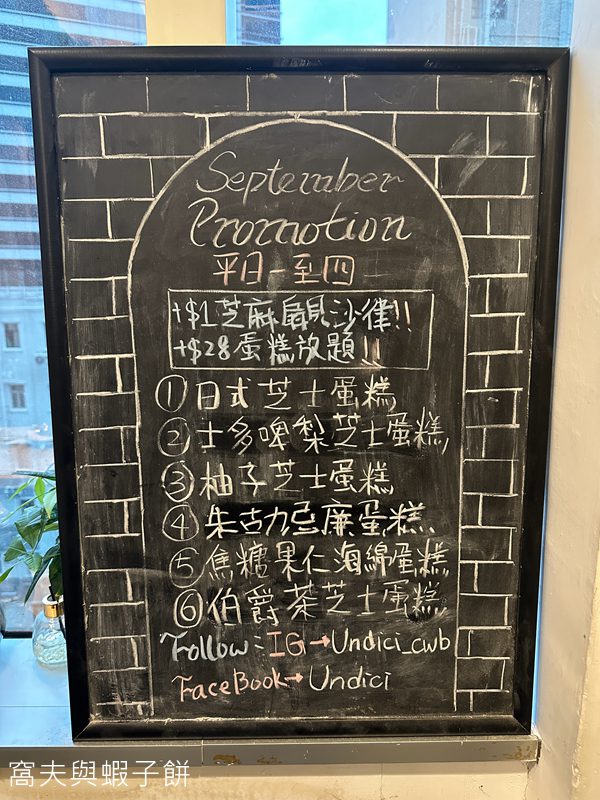 September
Promotion
平日一至四
+$1芝麻扇貝沙律!!
+$28蛋糕放題!!
①日式芝士蛋糕
②士多啤梨芝士蛋糕
③柚子芝士蛋糕
④朱古力忌廉蛋糕
⑤焦糖果仁海綿蛋糕
⑥伯爵茶芝士蛋糕
Follow:IG→Undici_cwb
FaceBook→Undici
窩夫與蝦子餅